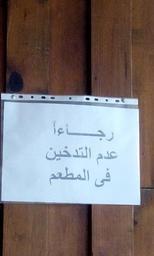 رجـــاءاً
عدم التدخين
فى المطعم